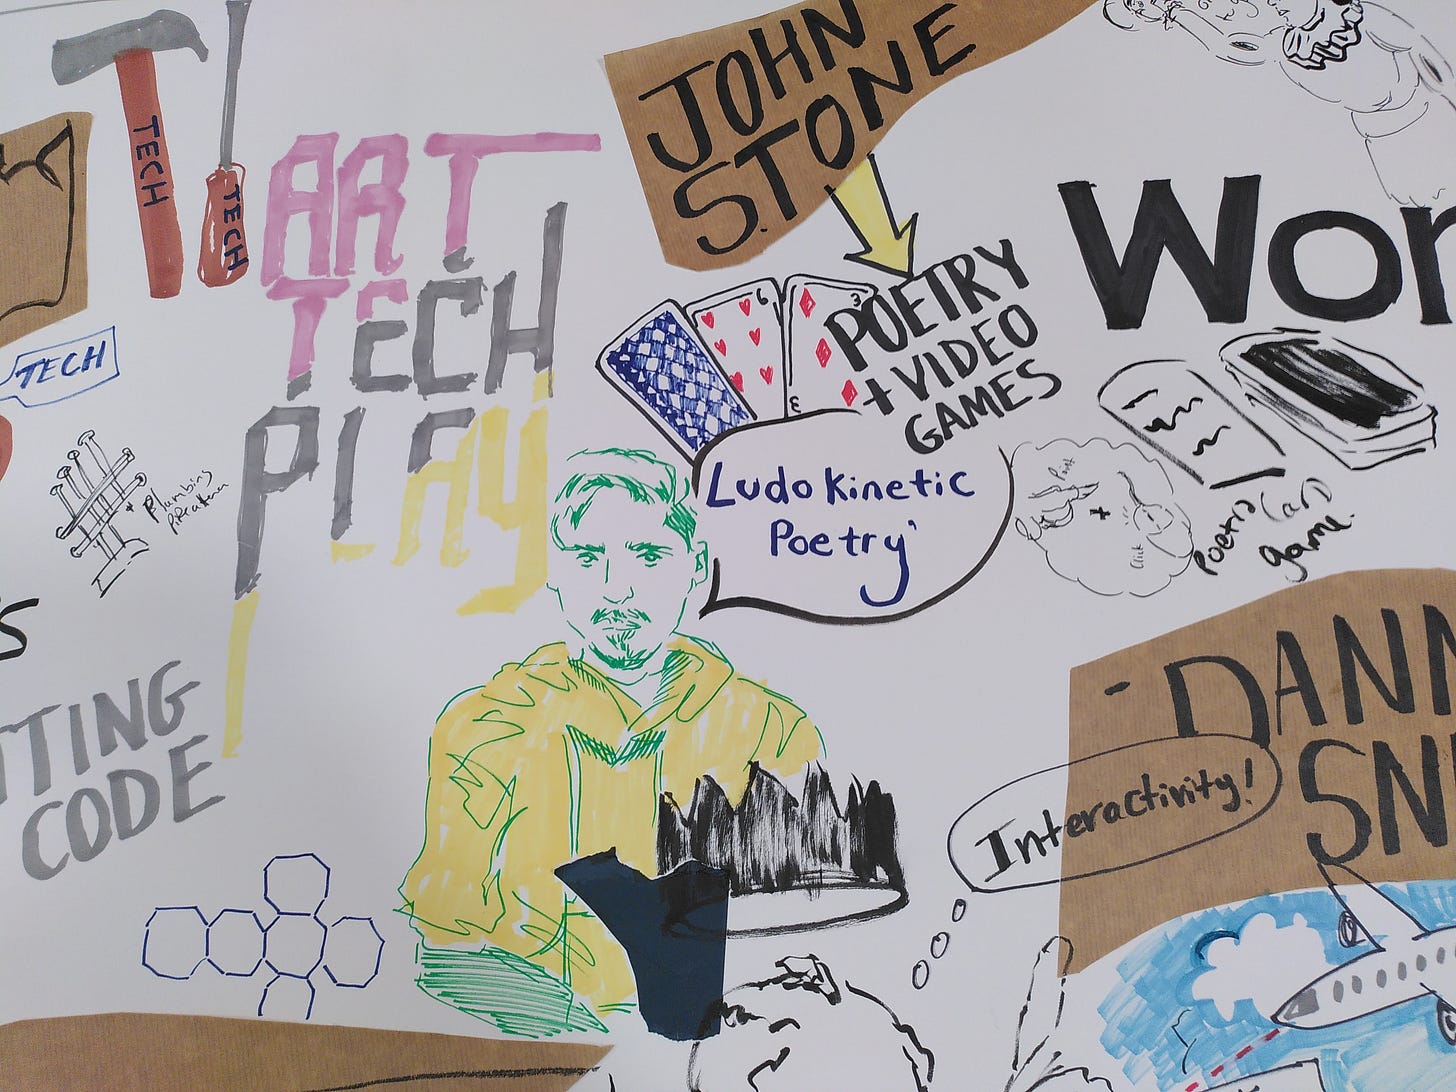 TECH
TECH
ART
TECH
PLAY
TECH
Plumbing
JOHN
STONE
POETRY
+ VIDEO
GAMES
6
3
3
Ludokinetic
Poetry
Poetry
Game
TTING
CODE
S
Wor
DANN
SN
Interactivity!